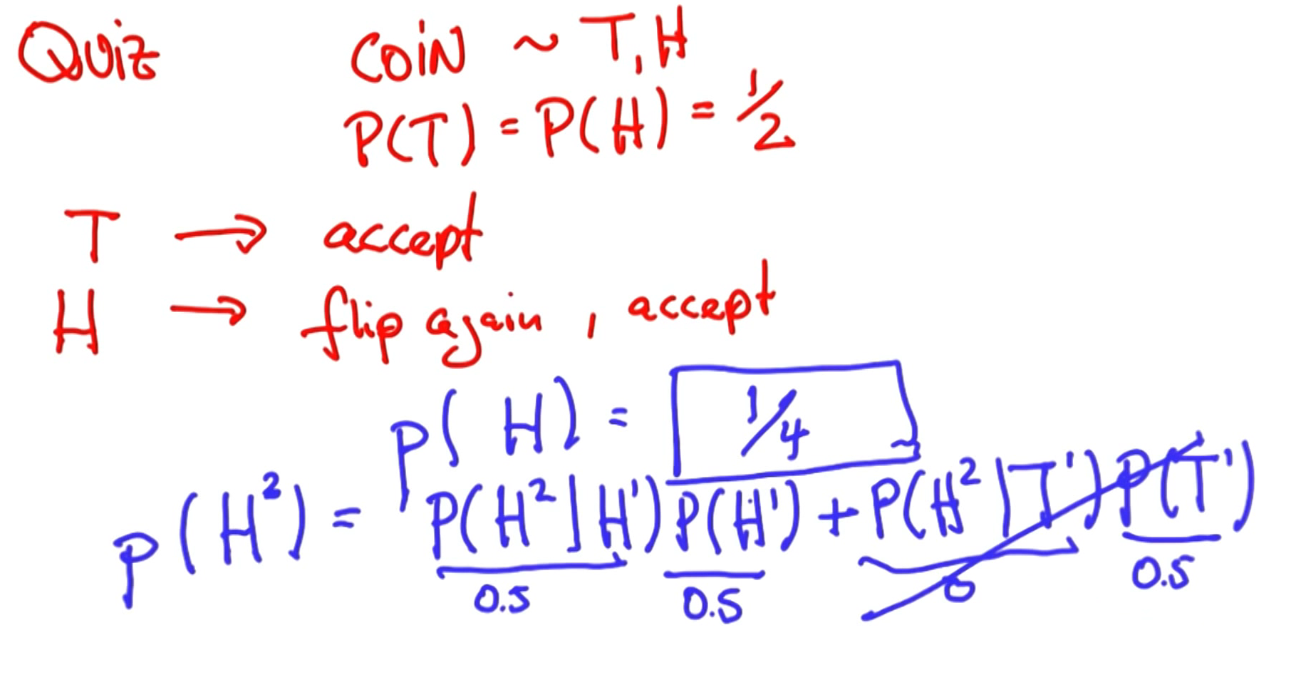 Quiz COIN ~ T, H
P(T) = P(H) = 1/2
T → accept
H → flip again, accept
P(H) = 1/4
P(H²) = P(H²|H¹)P(H¹) + P(H²|T¹)P(T¹)
0.5 0.5 0 0.5